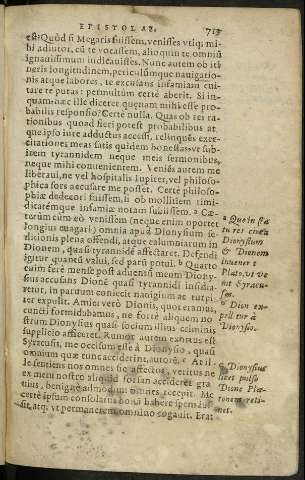 EPISTOLAE. 713
est: Quòd si Megaris fuissem, venisses vtiq; mi-
hi adiutor, cū te vocassem, alioquin te omniū
ignauissimum iudicauisses. Nunc autem ob iti
neris longitudinem, periculūmque nauigatio-
nis atque labores, te excusans infamiam cui-
tare te putas: permultùm certè aberit. Si in-
quam hæc ille diceret, quęnam mihi esse pro-
babilis responsio? Certè nulla. Quas ob res ra-
tionibus quoad fieri potest probabilibus at-
que ipso iure adductus accessi, relinquēs exer-
citationes meas satis quidem honestas: sub
tyrannidem neque meis sermonibus,
neque mihi conuenientem. Veniēs autem me
liberaui, ne vel hospitalis Iupiter, vel philoso-
phica sors accusare me posset. Certè philoso-
phię dedecori fuissem, si ob mollitiem timi-
ditatémque infamiæ notam subissem. a Cæ-
terùm cùm eò venissem (neque enim oportet
longius euagari) omnia apud Dionysium se-
ditionis plena offendi, atque calumniarum in
Dionem, quasi tyrannidē affectaret. Defendi
igitur quantū valui, sed parū potui. b Quarto
enim ferè mense post aduentū meum Diony-
sius accusans Dionē quasi tyrannidi insidia-
retur, in paruum coniecit nauigium ac turpi-
ter expulit. Amici verò Dionis, quot eramus,
cuncti formidabamus, ne fortè aliquem no-
strum Dionysius quasi socium illius criminis
supplicio afficeret. Rumor autem exortus est
Syracusis, me occisum esse à Dionysio, quasi
omnium quæ tunc acciderint, autorē. c At il-
le sentiens nos omnes sic affectos, veritus ne
ex metu nostro aliquid forsan accideret gra-
uius, benignè admodum omnes recepit. Me
certè ipsum consolatus bona habere
sit, atq; vt permanerem omnino cogauit. Erat
a Quo in sta
tu res ciuiū
Dionysium
& Dionem
inuenerit
Plato, vt ve
nit Syracu-
sas.
b Dion ex-
pellitur à
Dionysio.
c Dionysius
licet pulso
Dione Pla-
tonem reti-
net.